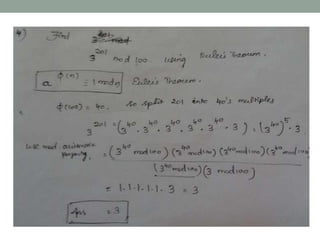 4) Find
3^201 mod 100 using Euler's Theorem.
a^φ(n) ≡ 1 mod n Euler's Theorem.
φ(100) = 40. so split 201 into 40's multiples
3^201 = (3^40 . 3^40 . 3^40 . 3^40 . 3^40 . 3) = (3^40)^5 . 3
use mod arithmetic
property = (3^40 mod 100) (3^40 mod 100) (3^40 mod 100) (3^40 mod 100
(3^40 mod 100) (3 mod 100)
= 1.1.1.1.1. 3 = 3
Ans = 3